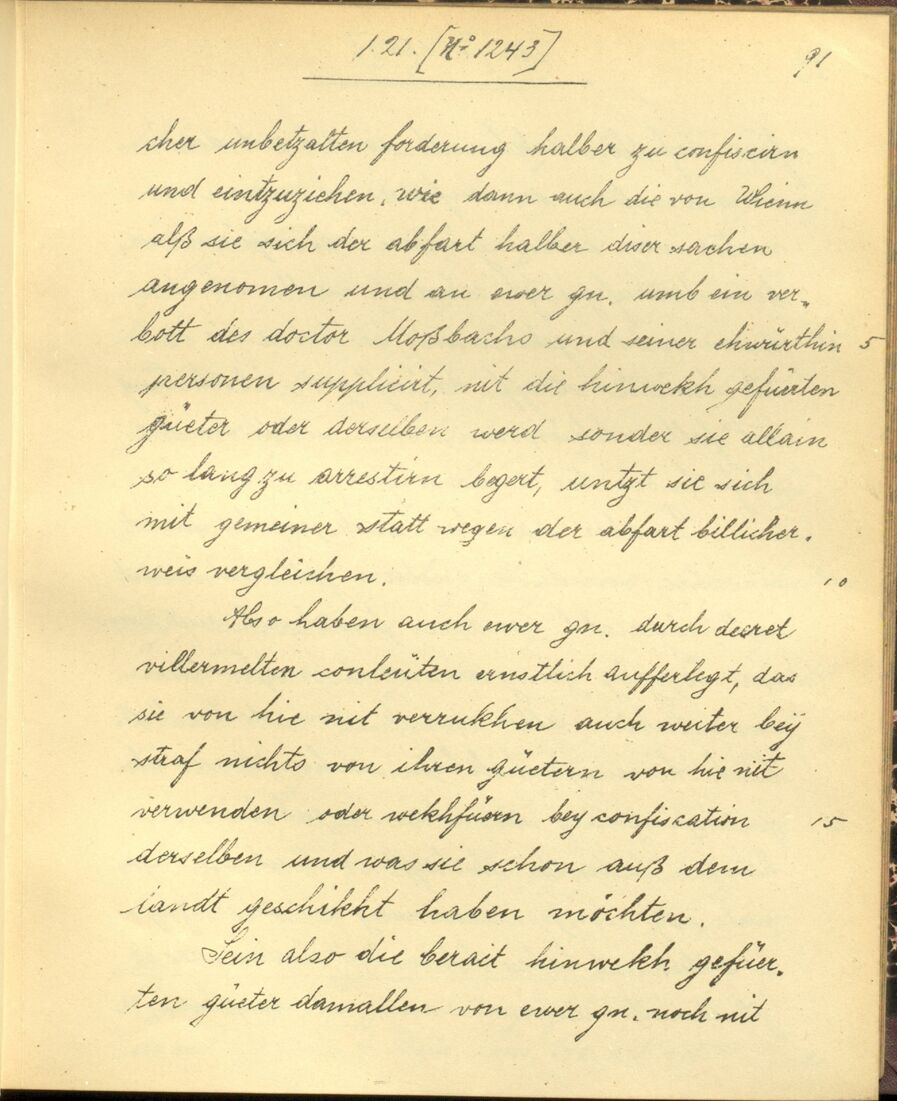 1.21. [No 1243]
91
cher unbetzalten forderung halber zu confiscirn
und eintzuziehen, wie dann auch die von Wienn
alß sie sich der abfart halber diser sachen
angenomen und an ewer gn. umb ein ver„
bott des doctor Moßbachs und seiner ehwürthin 5
personen supplicirt, nit die hinwekh gefüerten
güeter oder derselben werd sonder sie allain
so lang zu arrestirn begert, untzt sie sich
mit gemeiner statt wegen der abfart billicher.
weis vergleichen. 10
Also haben auch ewer gn. durch decret
villermelten conleüten ernstlich aufferlegt, das
sie von hie nit verrukhen auch weiter bey
straf nichts von ihren güetern von hie nit
verwenden oder wekhfüern bey confiscation 15
derselben und was sie schon auß dem
landt geschikht haben möchten.
Sein also die berait hinwekh gefüer.
ten güeter damallen von ewer gn. noch nit